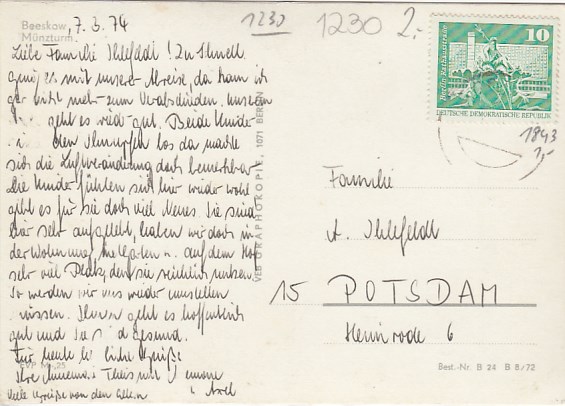 Beeskow, 7.3.74
Münzturm
1230 1230 2,-
Liebe Familie Ihlefeldt! Zu schnell
ging es mit unserer Abreise, da kam ich
gar nicht mehr zum Verabschieden. Unseren
geht es wieder gut. Beide Kinder
den Schnupfen los da machte
sich die Luftveränderung doch bemerkbar.
Die Kinder fühlen sich hier wieder wohl
gibt es für sie doch viel Neues. Sie sind
hier sehr aufgelebt, haben wir doch in
der Wohnung, im Garten u. auf dem Hof
sehr viel Platz, den sie reichlich nutzen.
So werden wir uns wieder umstellen
müssen. Ihnen geht es hoffentlich
gut und Sie sind gesund.
Für heute liebe Grüße
Ihre
Viele Grüße von den Eltern Axel
EVP M -,25
VEB GRAPHOKOPIE, 1071 BERLIN
Berlin Rathausstrasse
10
DEUTSCHE DEMOKRATISCHE REPUBLIK
1843
1,-
Familie
A. Ihlefeldt
15 POTSDAM
Heinrode 6
Best.-Nr. B 24 B 8/72